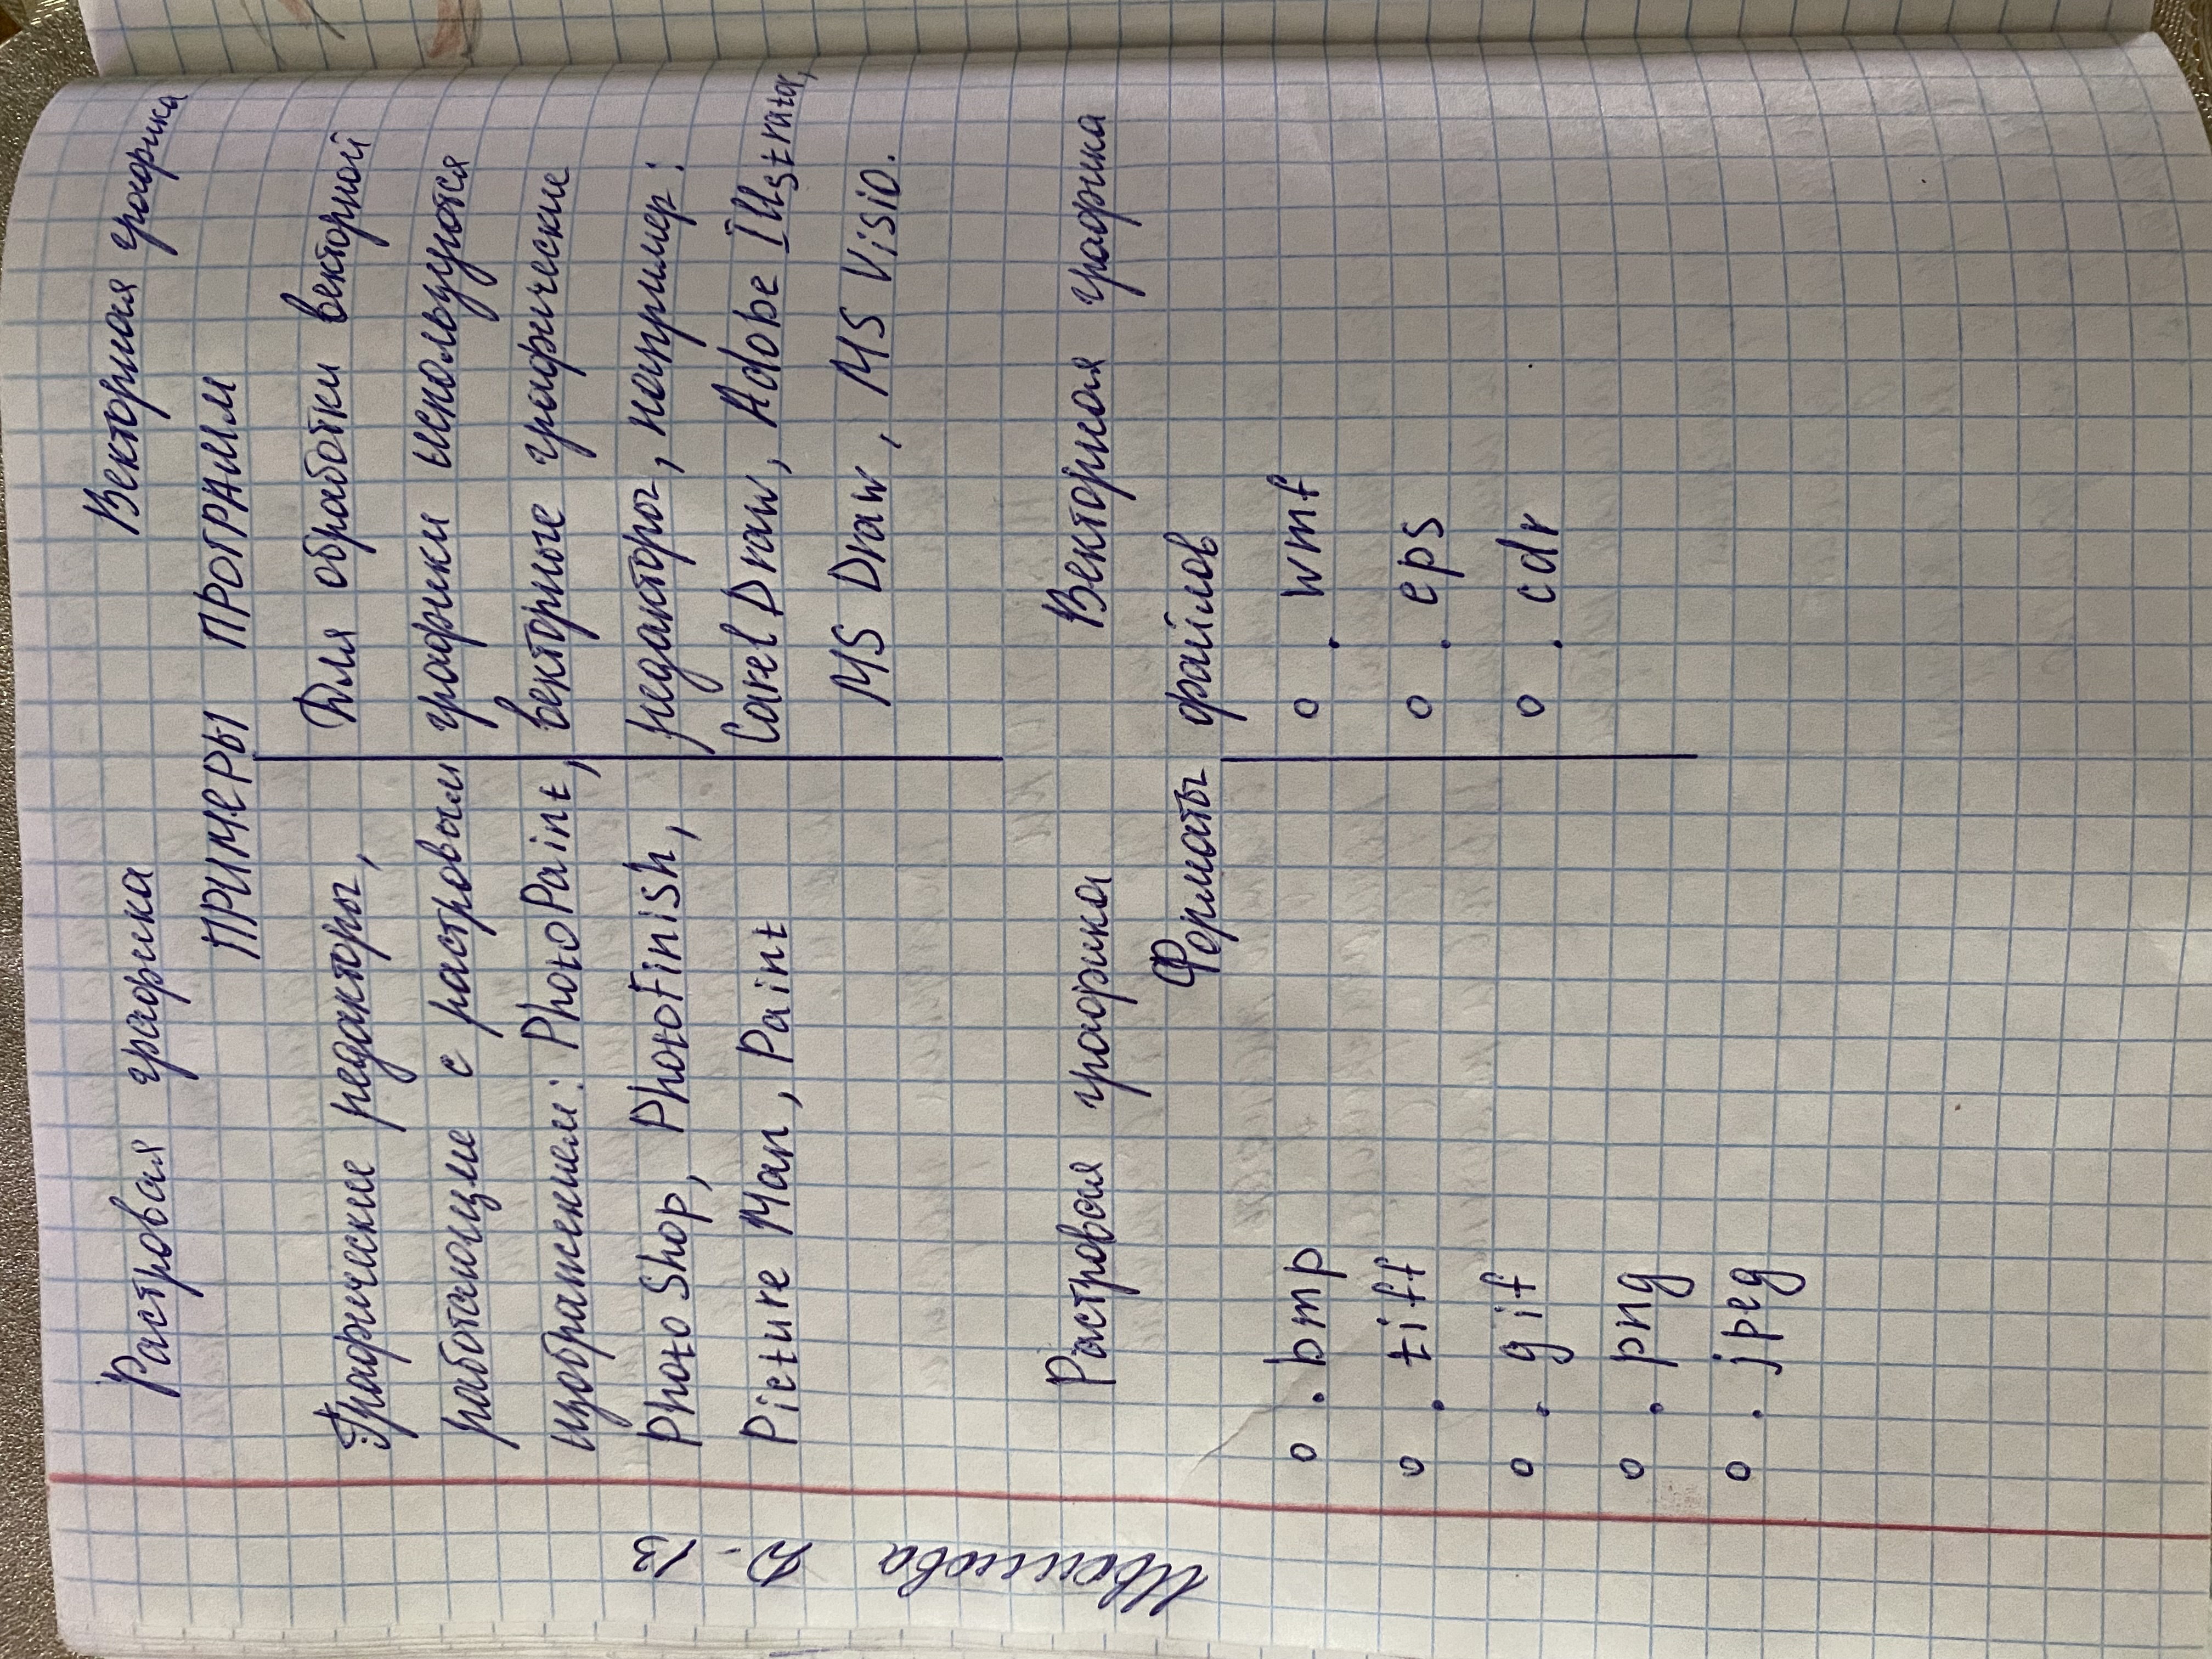 Растровая графика Векторная графика
ПРИМЕРЫ ПРОГРАММ
Графические редакторы,
работающие с растровым
изображением: PhotoPaint,
PhotoShop, PhotoFinish,
Picture Man, Paint
Для обработки векторной
графики используются
векторные графические
редакторы, например:
Corel Draw, Adobe Illstrator,
MS Draw, MS Visio.
Растровая графика Векторная графика
Форматы файлов
o .bmp
o .tiff
o .gif
o .png
o .jpeg
o .wmf
o .eps
o .cdr